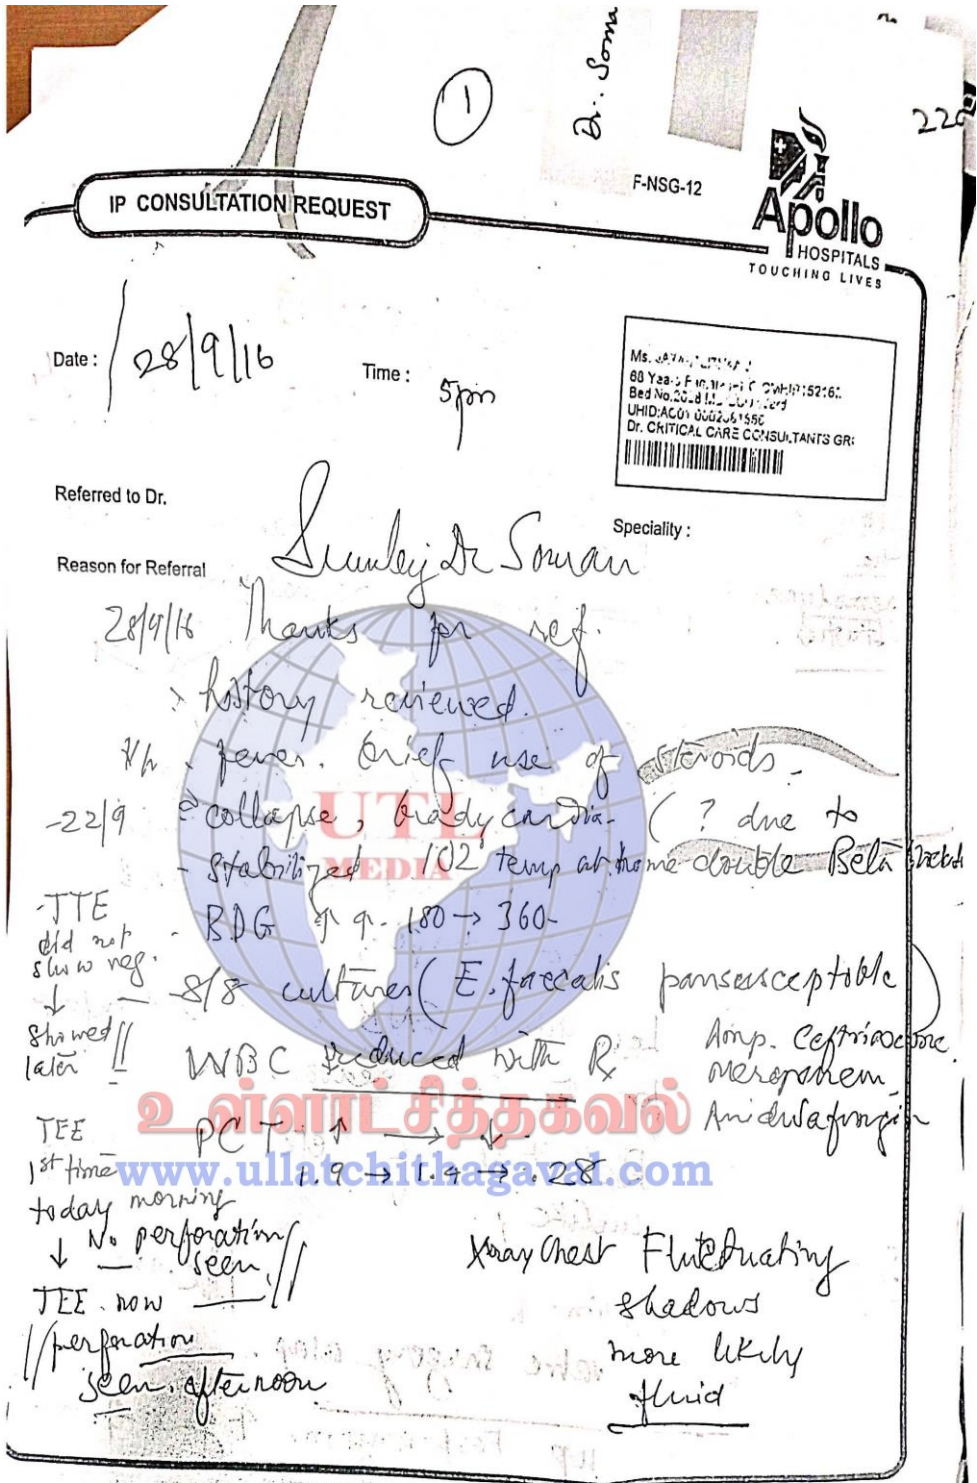 1
Dr. Soma
220
F-NSG-12
IP CONSULTATION REQUEST
Apollo
HOSPITALS
TOUCHING LIVES
Date : 28/9/16
Time : 5pm
Ms.
68 Years
Bed No.
UHID:
Dr. CRITICAL CARE CONSULTANTS GR
Referred to Dr.
Speciality :
Reason for Referral
Dr Soman
28/9/16 Thanks for ref.
history reviewed.
H/o fever. brief use of steroids
-22/9 collapse, bradycardia (? due to
- stabilized 102° temp at home double Beta
- BDG ↑ ↑ 180 → 360
- 8/8 cultures (E. faecalis pansusceptible
WBC reduced with Rx
Amp. Ceftriaxone
Meropenem
Anidulafungin
PCT ↑ → ↓
1.9 → 1.4 → .28
-TTE
did not
show veg.
↓
showed
later
TEE
1st time
today morning
↓ No perforation
seen
TEE now
perforation
seen afternoon
Xray Chest Fluctuating
shadows
more likely
fluid
UTL
MEDIA
உள்ளாட்சித்தகவல்
www.ullatchithagaval.com